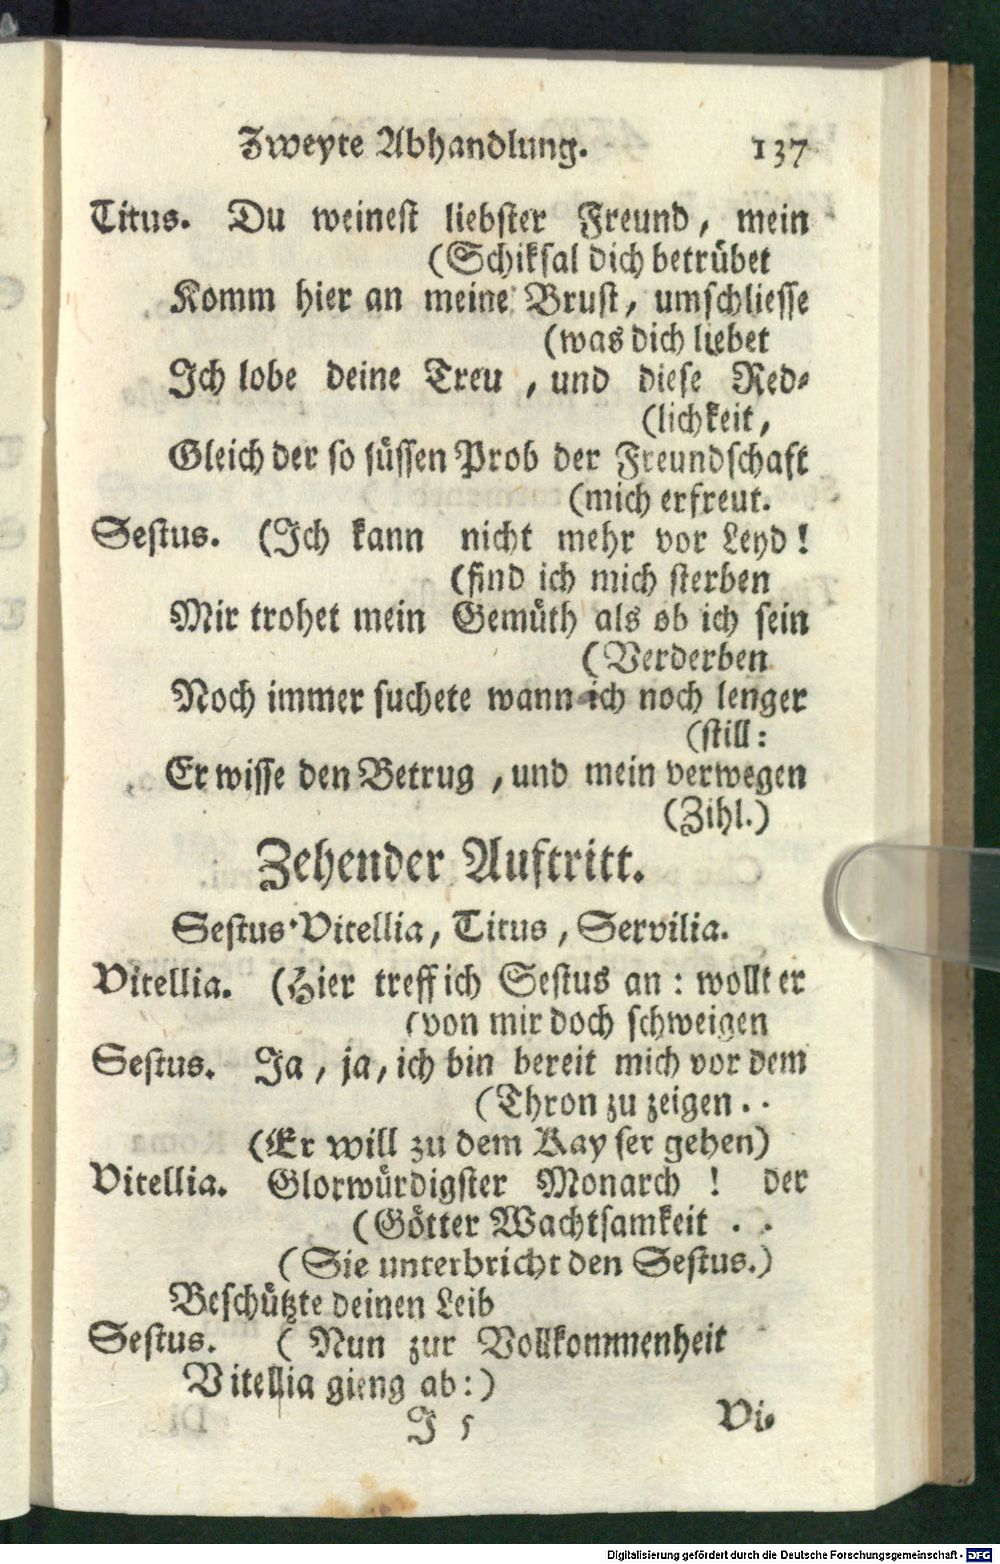 Zweyte Abhandlung. 137
Titus. Du weinest liebster Freund, mein
(Schiksal dich betrübet
Komm hier an meine Brust, umschliesse
(was dich liebet
Ich lobe deine Treu, und diese Red-
(lichkeit,
Gleich der so süssen Prob der Freundschaft
(mich erfreut.
Sestus. (Ich kann nicht mehr vor Leyd!
(find ich mich sterben
Mir trohet mein Gemüth als ob ich sein
(Verderben
Noch immer suchete wann ich noch lenger
(still:
Er wisse den Betrug, und mein verwegen
(Zihl.)
Zehender Auftritt.
Sestus Vitellia, Titus, Servilia.
Vitellia. (Hier treff ich Sestus an: wollt er
(von mir doch schweigen
Sestus. Ja, ja, ich bin bereit mich vor dem
(Thron zu zeigen..
(Er will zu dem Kayser gehen)
Vitellia. Glorwürdigster Monarch! der
(Götter Wachtsamkeit ..
(Sie unterbricht den Sestus.)
Beschützte deinen Leib
Sestus. (Nun zur Vollkommenheit
Vitellia gieng ab:)
J 5 Vi-
Digitalisierung gefördert durch die Deutsche Forschungsgemeinschaft - DFG